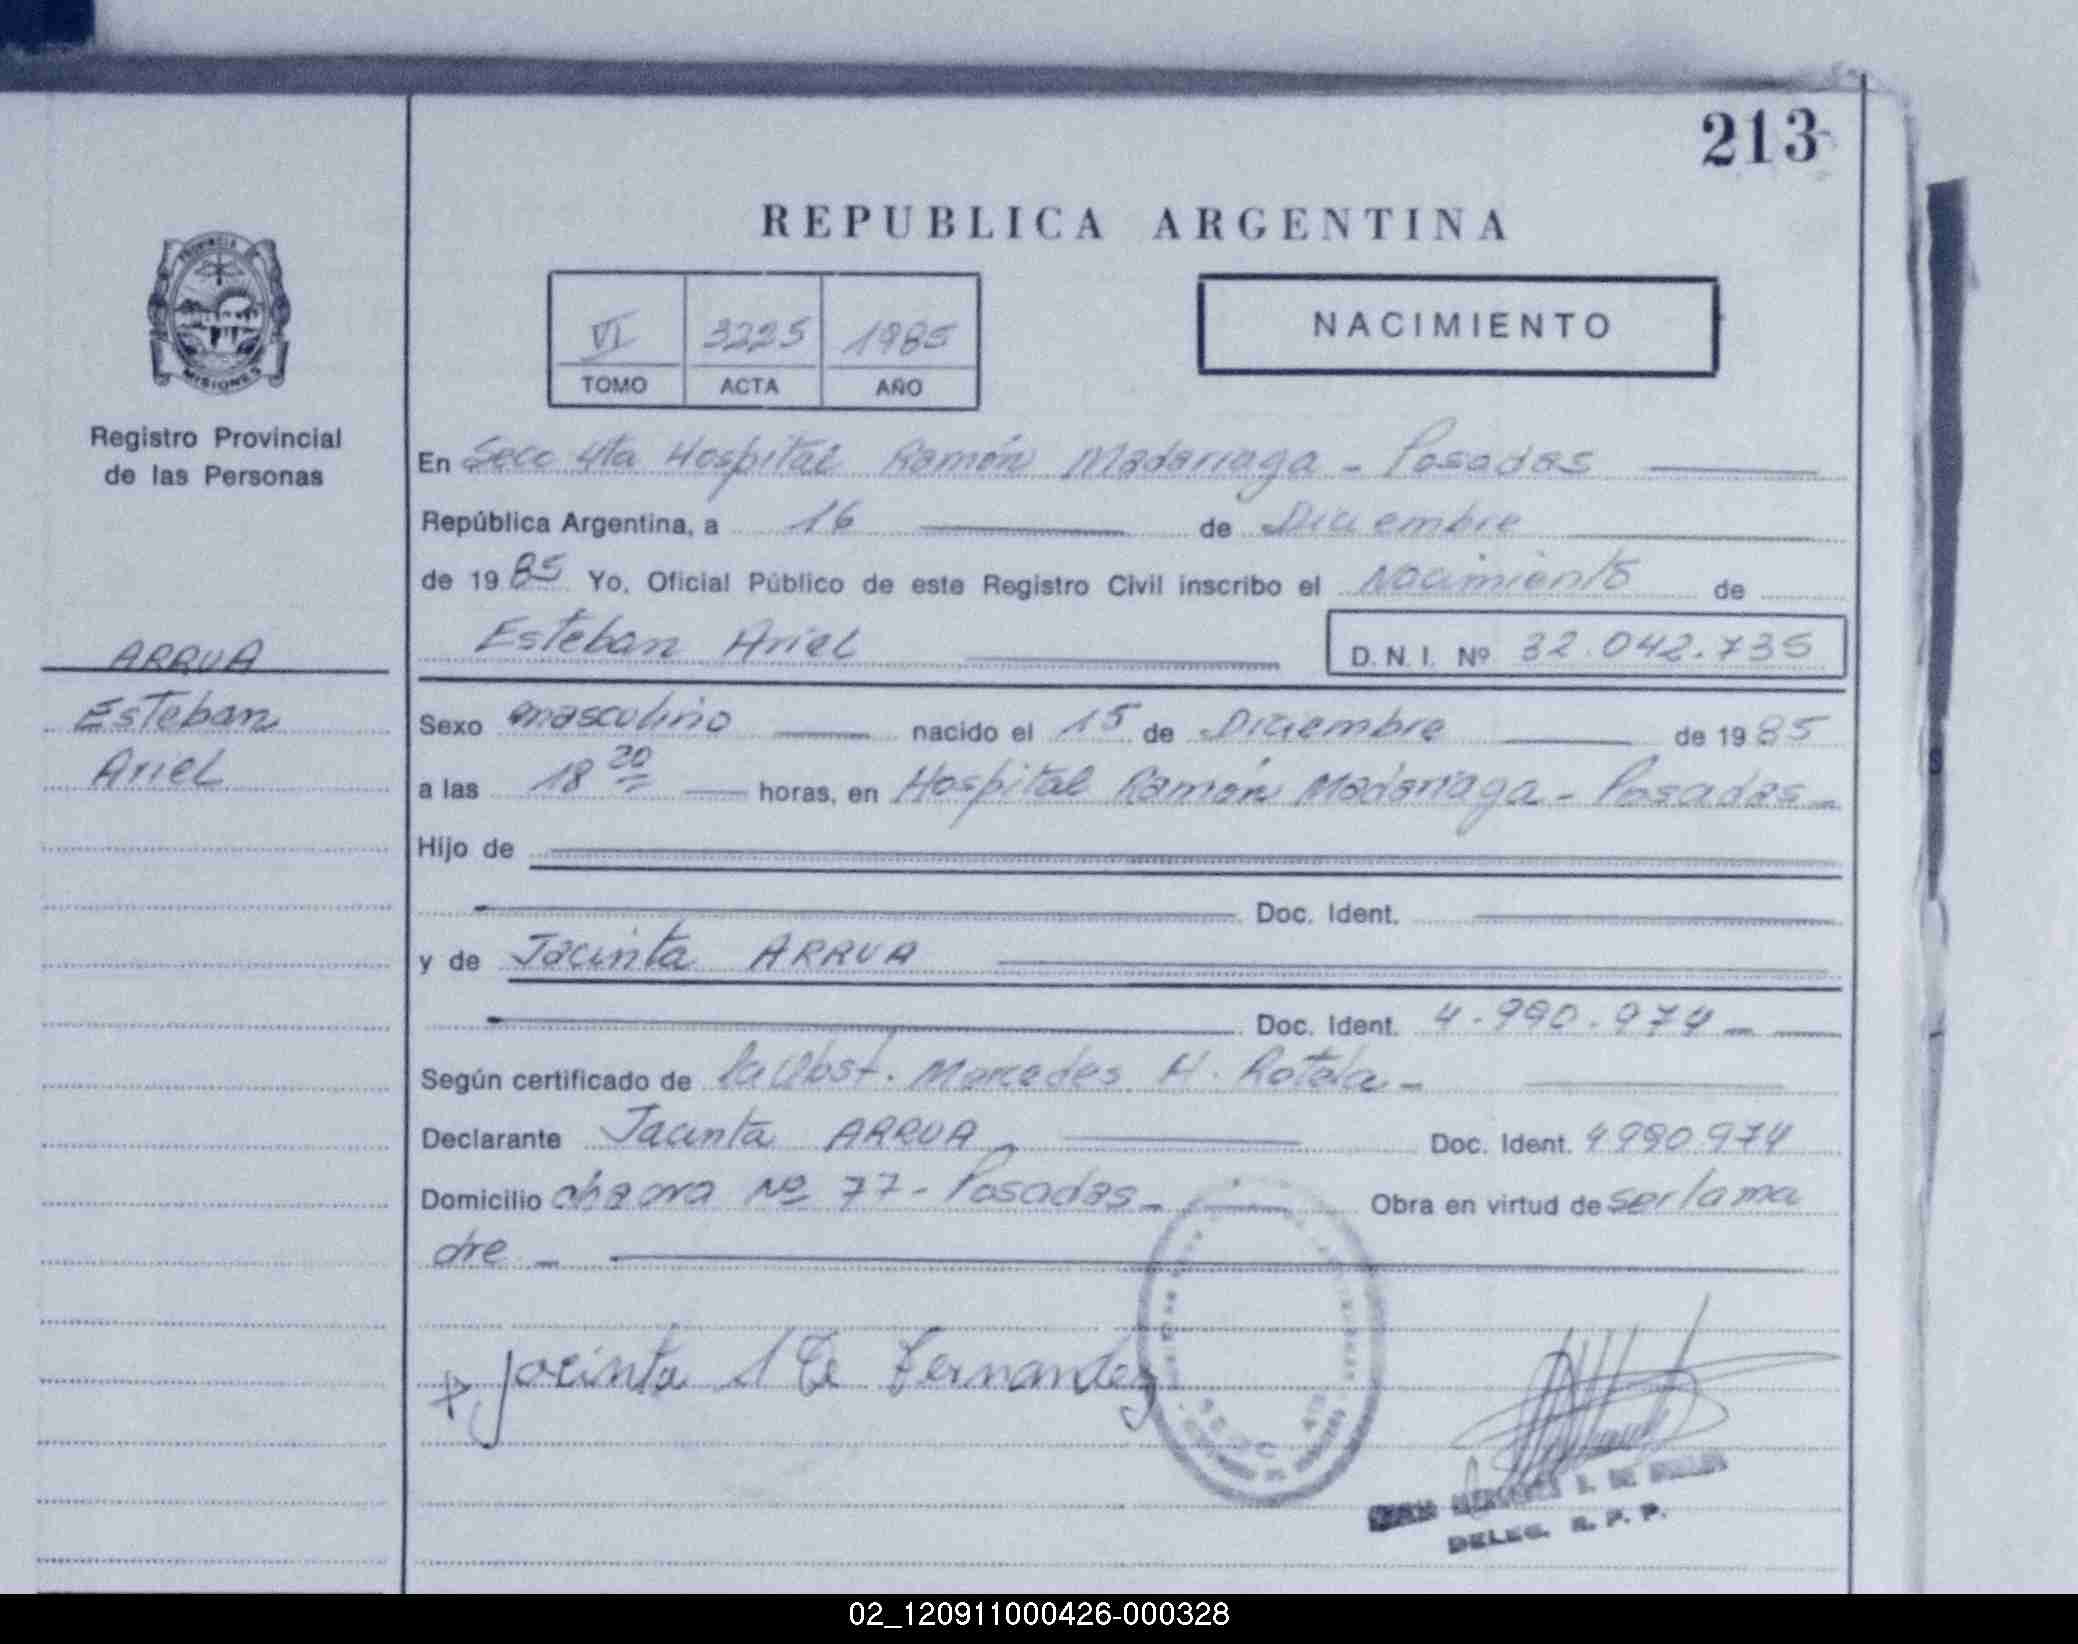 213
REPUBLICA ARGENTINA
PROVINCIA DE
MISIONES
Registro Provincial
de las Personas
VI 3225 1985
TOMO ACTA AÑO
NACIMIENTO
En Secc 4ta Hospital Ramón Madarriaga - Posadas
República Argentina, a 16 de Diciembre
de 1985 Yo, Oficial Público de este Registro Civil inscribo el Nacimiento de
Esteban Ariel D. N. I. Nº 32.042.735
ARRUA
Esteban
Ariel
Sexo masculino nacido el 15 de Diciembre de 1985
a las 18 20 horas, en Hospital Ramón Madariaga - Posadas -
Hijo de
Doc. Ident.
y de Jacinta ARRUA
Doc. Ident. 4.990.974 -
Según certificado de la Obst. Mercedes H. Rotela -
Declarante Jacinta ARRUA Doc. Ident. 4990974
Domicilio chacra Nº 77 - Posadas - Obra en virtud de ser la ma
dre -
Jacinta A de Fernandez
DELEG. R. P. P.
02_120911000426-000328